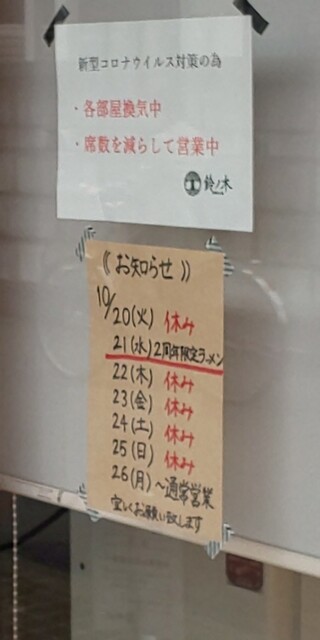 新型コロナウイルス対策の為
・各部屋換気中
・席数を減らして営業中
鈴ノ木
《お知らせ》
10/20(火) 休み
21(水) 2周年限定ラーメン
22(木) 休み
23(金) 休み
24(土) 休み
25(日) 休み
26(月)〜通常営業
宜しくお願い致します